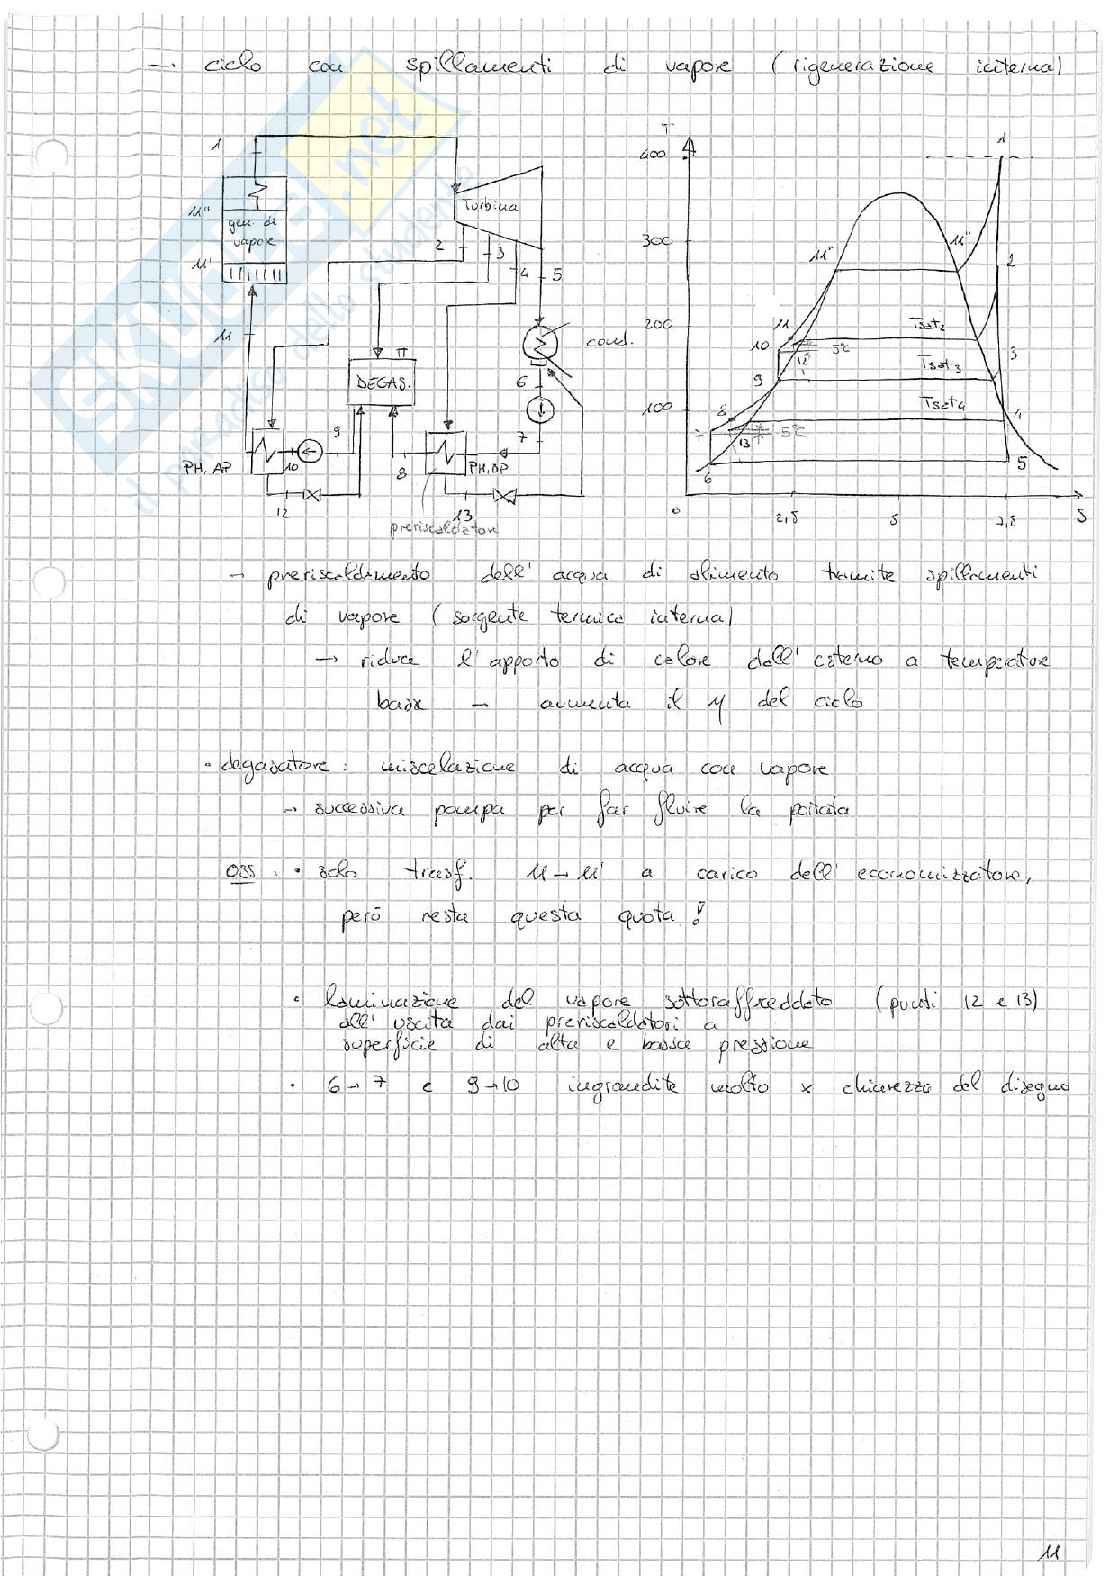 →. ciclo con spillamenti di vapore (rigenerazione interna)
1
11"
gen. di
vapore
11'
11
Turbina
2
3
4
5
cond.
DEGAS.
π
6
7
8
9
10
PH. AP
PH. BP
12
13
preriscaldatore
T
400
300
200
100
0
2,5
5
7,5
S
1
2
3
4
5
6
7
8
9
10
11
11'
11"
12
13
Tsat2
Tsat3
Tsat4
5°C
5°C
→ preriscaldamento dell' acqua di alimento tramite spillamenti
di vapore (sorgente termica interna)
→ riduce l' apporto di calore dall' esterno a temperature
basse → aumenta il η del ciclo
• degasatore: miscelazione di acqua con vapore
→ successiva pompa per far fluire la portata
OSS: • solo trasf. 11→11' a carico dell' economizzatore,
però resta questa quota!
• laminazione del vapore sottoraffreddato (punti 12 e 13)
all' uscita dai preriscaldatori a
superficie di alta e bassa pressione
• 6→7 e 9→10 ingrandite molto x chiarezza del disegno
11
SKUOLA.net
il paradiso dello studente